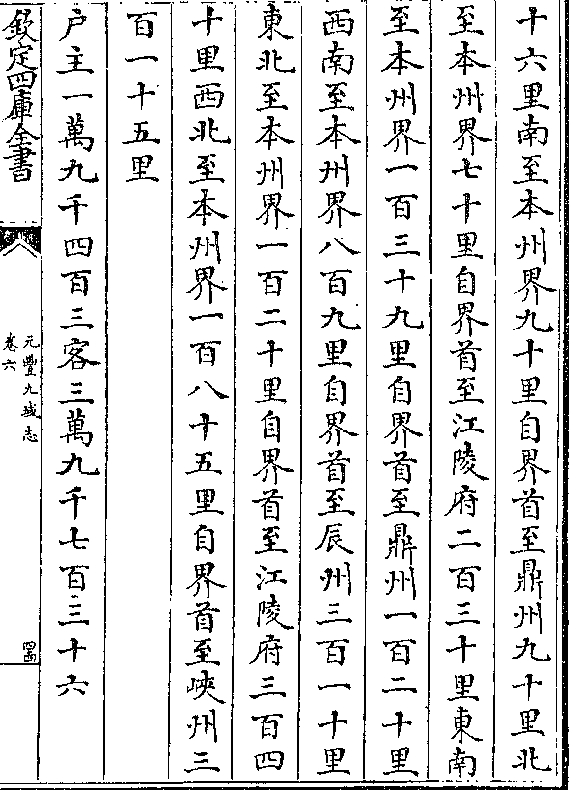 十六里南至本州界九十里自界首至鼎州九十里北
至本州界七十里自界首至江陵府二百三十里東南
至本州界一百三十九里自界首至鼎州一百二十里
西南至本州界八百九里自界首至辰州三百一十里
東北至本州界一百二十里自界首至江陵府三百四
十里西北至本州界一百八十五里自界首至峽州三
百一十五里
户主一萬九千四百三客三萬九千七百三十六
欽定四庫全書
元豐九域志
卷六